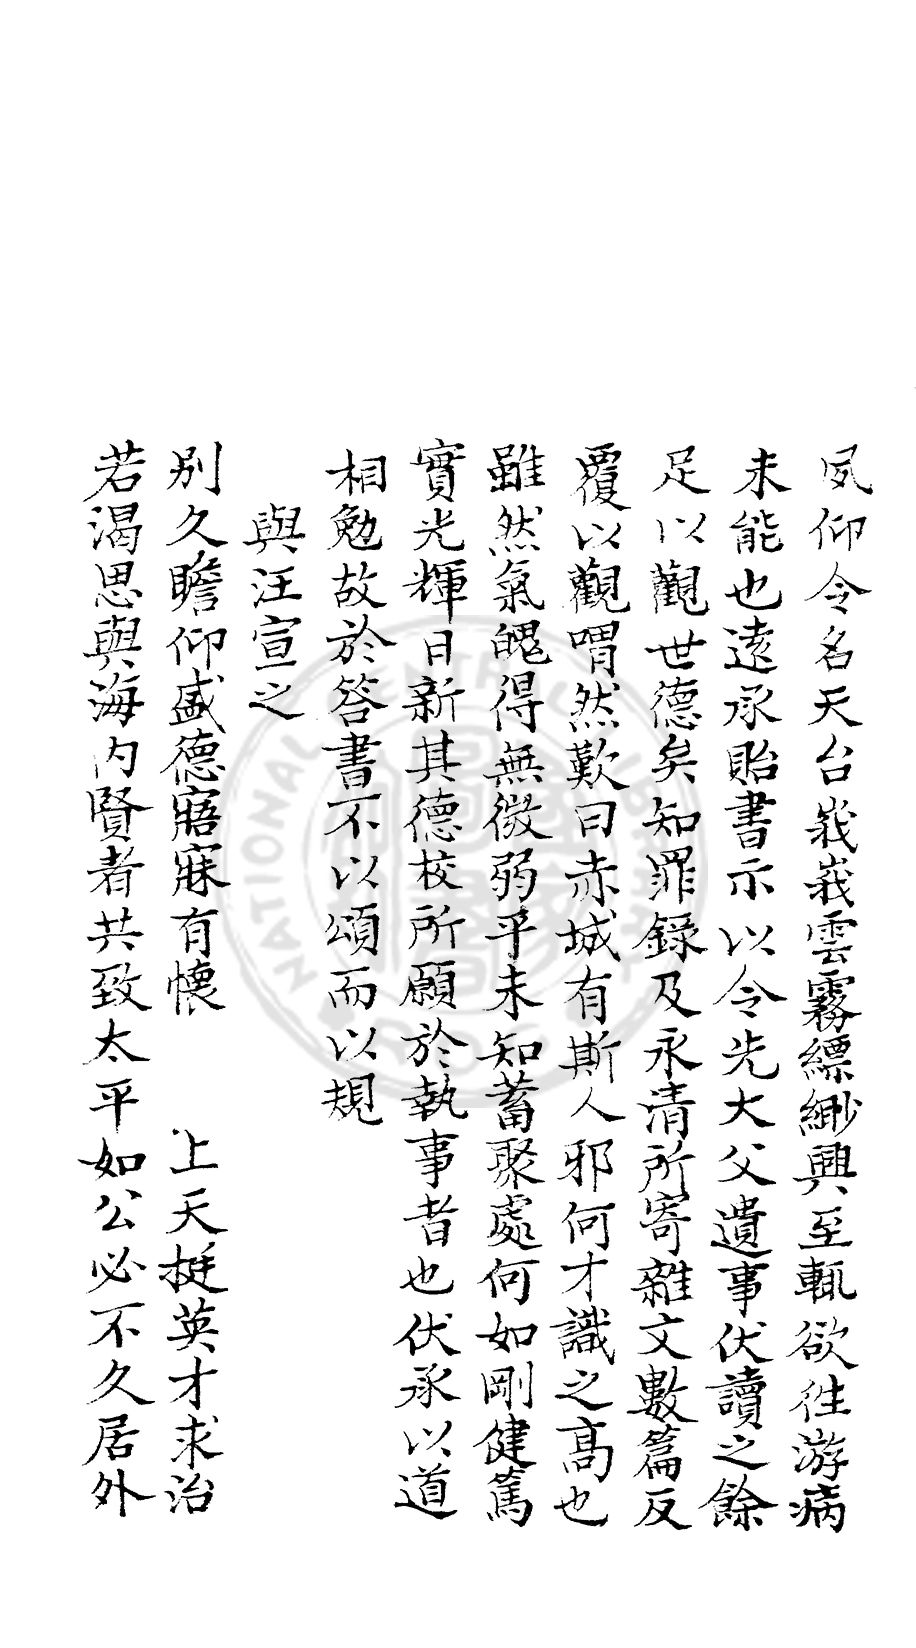 夙仰令名天台峩峩雲霧縹緲興至輒欲徃游病
未能也逺承貽書示以令先大父遺事伏讀之餘
足以觀世德矣知罪錄及永清所寄雜文數篇反
覆以觀喟然歎曰赤城有斯人邪何才識之高也
雖然氣魄得無微弱乎未知蓄聚處何如剛健篤
實光輝日新其德校所願於執事者也伏承以道
相勉故於答書不以頌而以規
與汪宣之
別久瞻仰盛德寤寐有懷　上天挺英才求治
若渴思與海內賢者共致太平如公必不久居外
NATIONAL CENTRAL LIBRARY